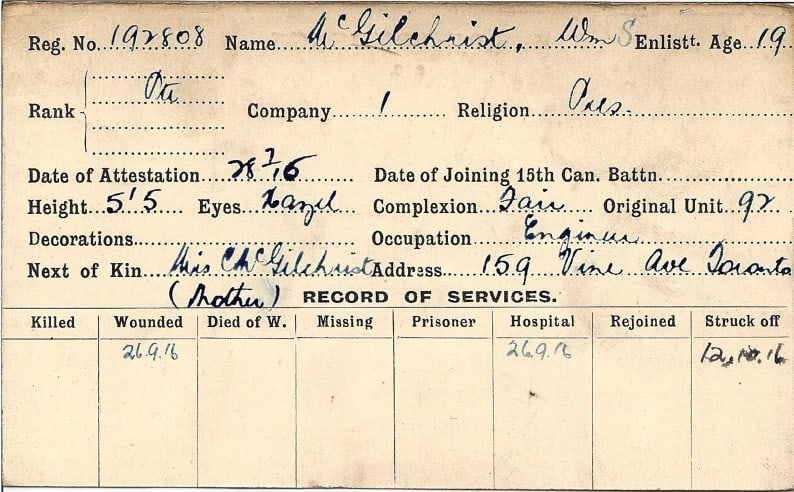 Reg. No. 192808 Name McGilchrist, Wm S Enlistt. Age 19
Rank Pte Company 1 Religion Pres.
Date of Attestation 28/7/15 Date of Joining 15th Can. Battn.
Height 5'5 Eyes Hazel Complexion Fair Original Unit 92
Decorations Occupation Engineer
Next of Kin Mrs C McGilchrist Address 159 Vine Ave Toronto
(Mother) RECORD OF SERVICES.
Killed Wounded Died of W. Missing Prisoner Hospital Rejoined Struck off
26.9.16 26.9.16 12.10.16